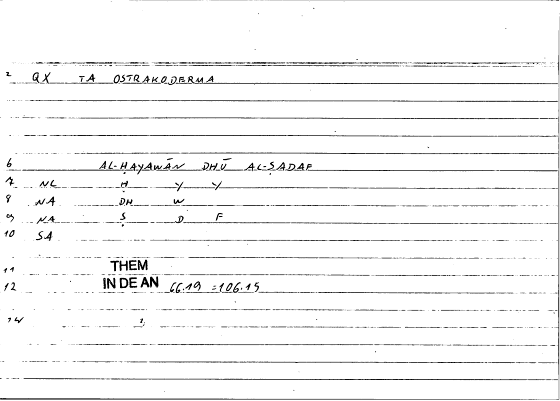 2 QX TA OSTRAKODERMA
6 AL-ḤAYAWĀN DHŪ AL-ṢADAF
7 NL Ḥ Y Y
8 NA DH W
9 NA Ṣ D F
10 SA
11 THEM
12 IN DE AN 66.19 = 106.15
14